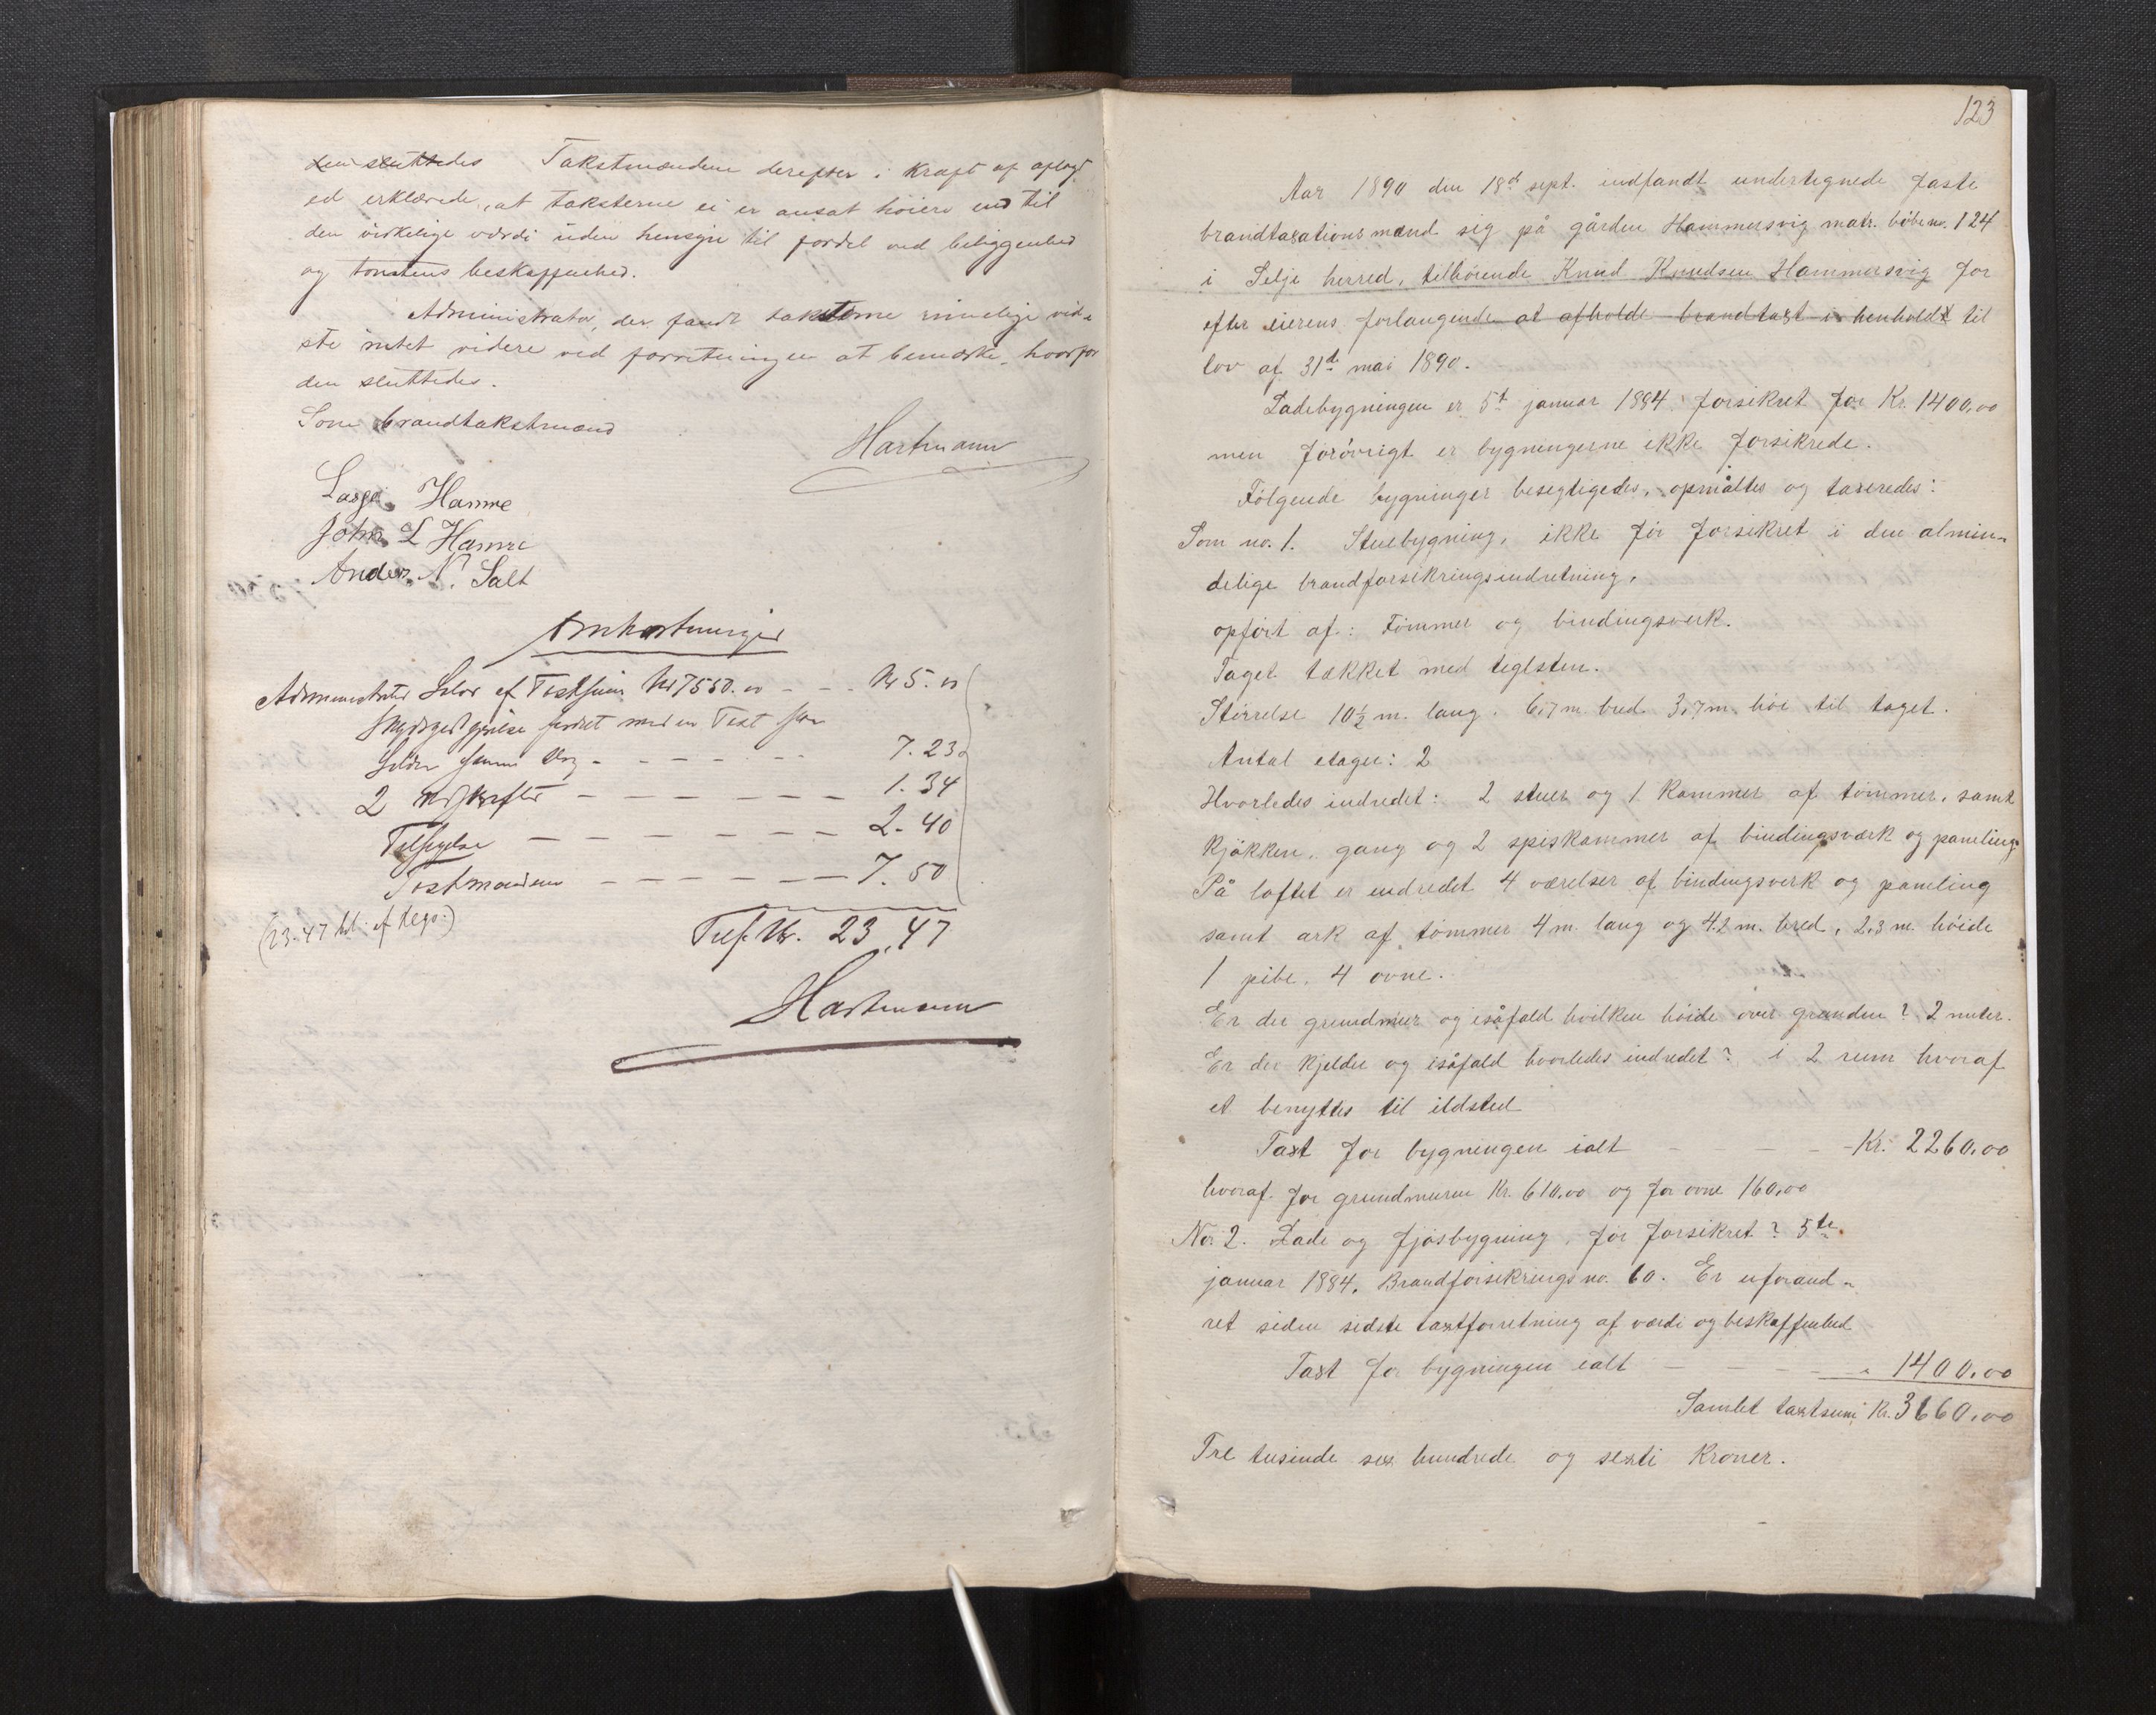 den sluttedes Takstmændene derefter i kraft af aflagt
ed erklærede, at taksterne ei er ansat høiere end til
den virkelige værdi uden hensyn til fordel ved beliggenhed
og tomtens beskaffenhed.
Administrator, der fandt taksterne rimelige vid-
ste intet videre ved forretningen at bemærke, hvorfor
den sluttedes.
Som brandtakstmænd
Hartmann
Lasse Hamre
John L Hamre
Anders N. Salt
Omkostninger
Administrator Salær af Taxtsum Kr 7550.00 - - - Kr 5.00
Skydsgodtgjørelse fordret med en Taxt
samme Vei - - - - - - 7.23
2 Udskrifter - - - - - - 1.34
Tilsigelse - - - - - - 2.40
Taxtmændene - - - - - - 7.50
(23.47
Tils. Kr. 23.47
Hartmann
123
Aar 1890 den 18de sept. indfandt undertegnede faste
brandtaxationsmænd sig på gården Hammersvig matr. løbeno. 124
i Selje herred, tilhørende Knud Knudsen Hammersvig for
efter eierens forlangende at afholde brandtaxt i henhold til
lov af 31te mai 1890.
Ladebygningen er 5te januar 1884 forsikret for Kr. 1400,00
men forøvrigt er bygningerne ikke forsikrede.
Følgende bygninger besegtigedes, opmåltes og taxeredes:
Som no. 1. Stuebygning, ikke før forsikret i den almin-
delige brandforsikringsindretning,
opført af: Tømmer og bindingsverk.
Taget tækket med teglsten.
Størrelse 10½ m. lang, 6,7 m bred 3,7 m. høi til taget.
Antal etager: 2
Hvorledes indredet: 2 stuer og 1 kammer af tømmer, samt
kjøkken, gang og 2 spiskammer af bindingsværk og paneling
På loftet er indredet 4 værelser af bindingsverk og paneling
samt ark af tømmer 4 m. lang og 4.2 m. bred, 2,3 m. høide
1 pibe, 4 ovne.
Er der grundmur og isåfald hvilken høide over grunden? 2 meter.
Er der kjelder og isåfald hvorledes indredet? i 2 rum hvoraf
et benyttes til ildsted
Taxt for bygningen ialt - - - Kr. 2260,00
hvoraf for grundmuren Kr. 610,00 og for ovne 160,00
No. 2. Lade og fjøsbygning, før forsikret? 5te
januar 1884, Brandforsikringsno. 60. Er uforand-
ret siden sidste taxtforretning af værdi og beskaffenhed
Taxt for bygningen ialt - - - " 1400,00
Samlet taxtsum Kr. 3660,00
Tre tusinde sex hundrede og sexti Kroner.